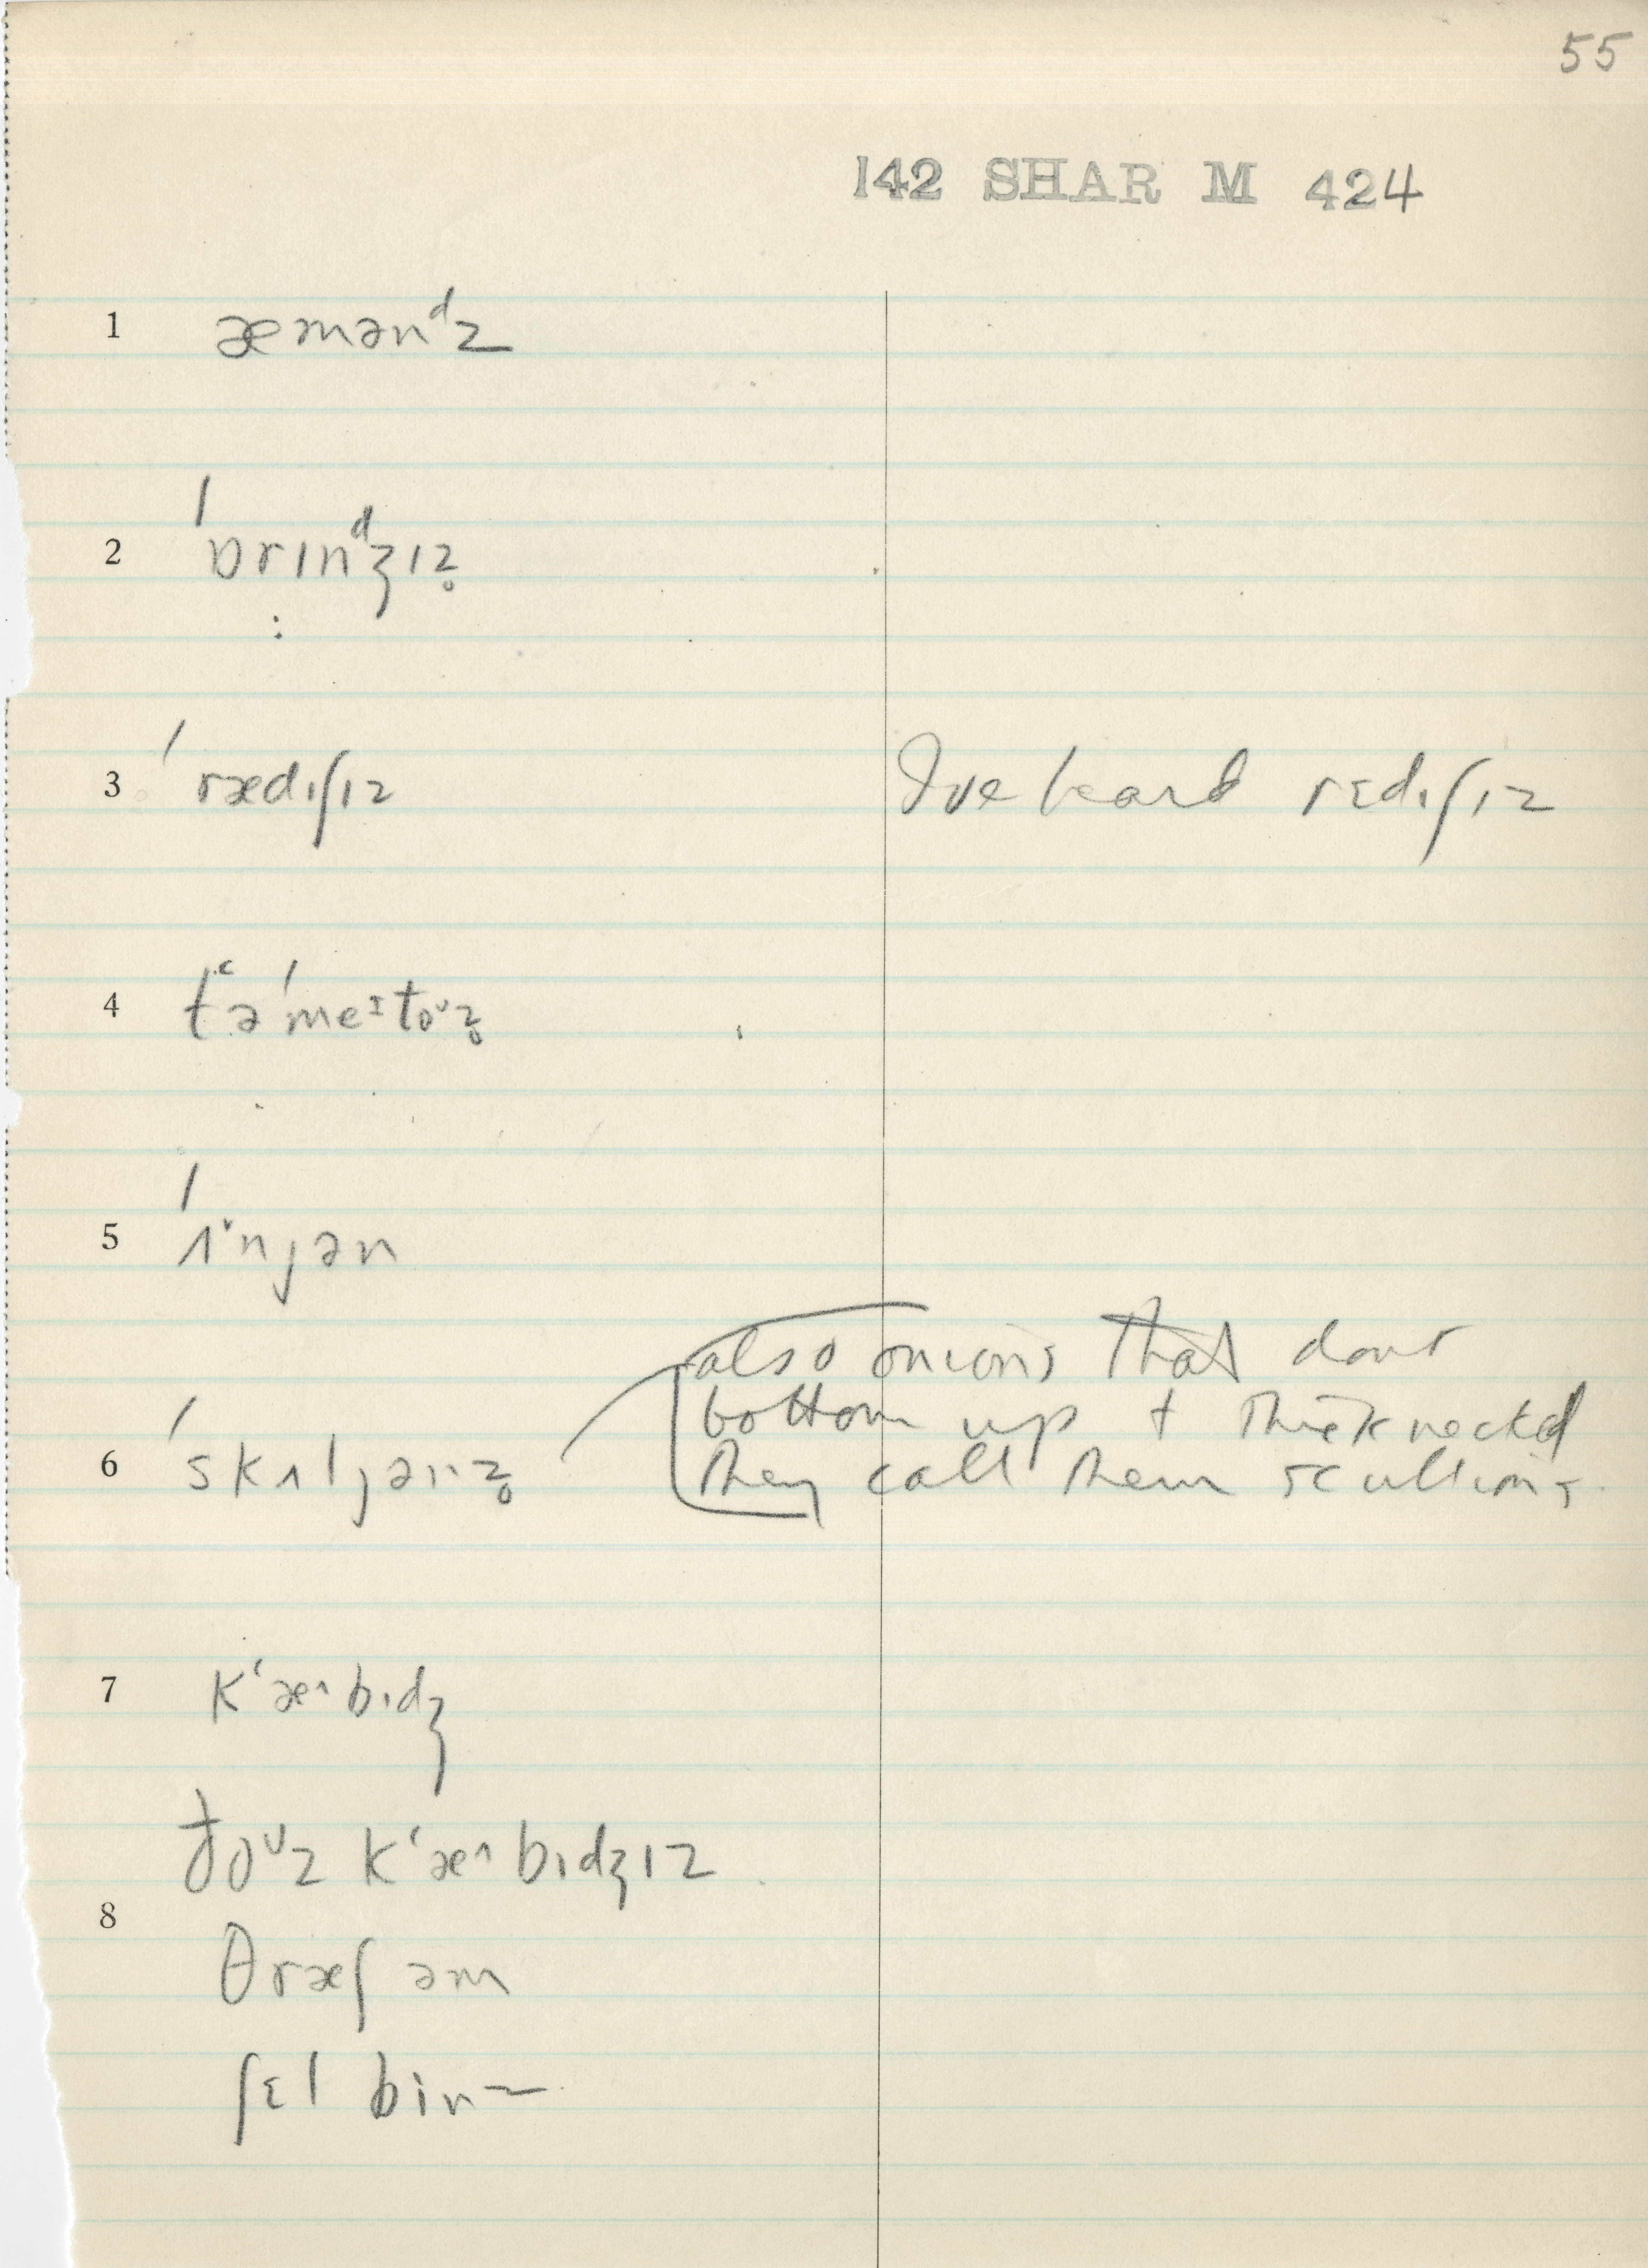 55
142 SHAR M 424
1 æmənᵈz
2 ˈɒrɪnᵈʒɪz̥
3 ˈrædɪʃɪz I've heard rɛdɪʃɪz
4 tʻəˈmeᶦtoᶷz̥
5 ˈʌ˅njən
also onions that dont
bottom up + thick necked
6 ˈskʌljənz̥ they call them scullions
7 kʻæ˄bɪdʒ
ðoᶷz kʻæ˄bɪdʒɪz
8
θræʃ əm
ʃɛl binz